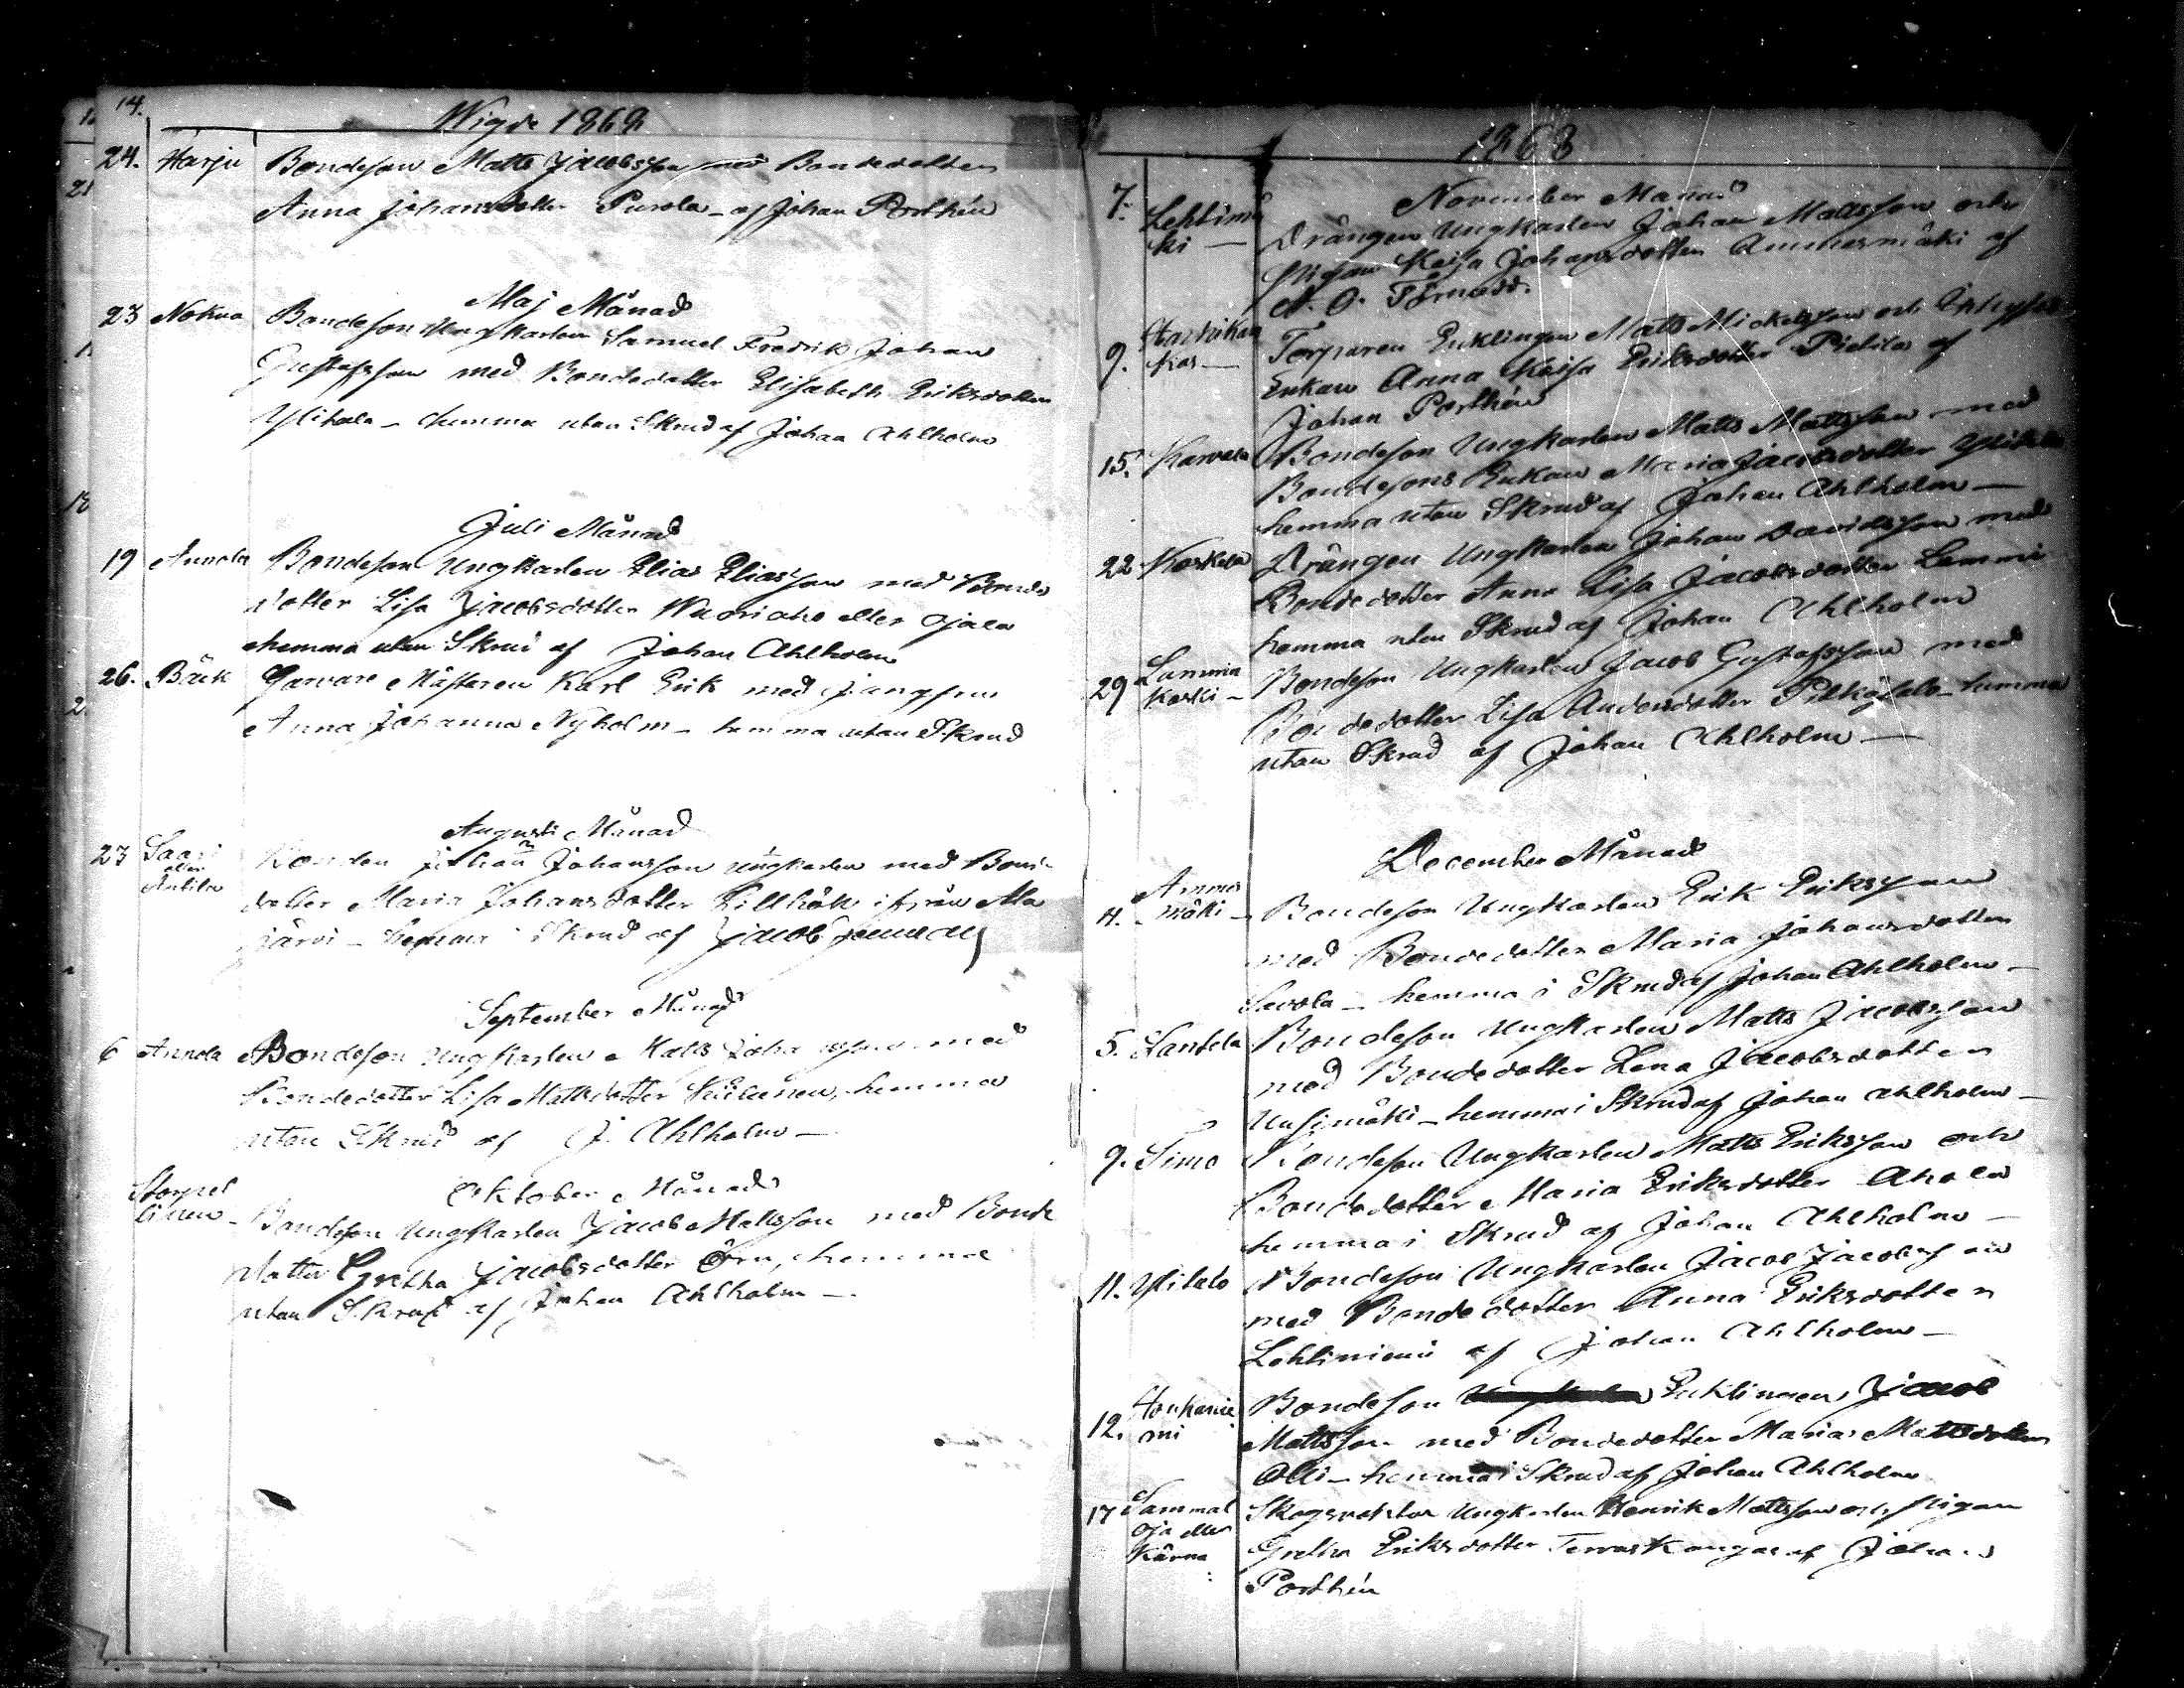 14.
Wigde 1868
24. Harju Bondeson Matts Jacobsson med Bondedotter
Anna Johansdotter Purola - af Johan Porthén
Maj Månad
23 Nokua Bondeson Ungkarlen Samuel Fredrik Johan
Gustafsson med Bondedotter Elisabeth Eriksdotter
Ylihala - hemma utan Skrud af Johan Ahlholm
Juli Månad
19 Annola Bondeson Ungkarlen Elias Eliasson med Bonde
dotter Lisa Jacobsdotter Wuoriaho eller Ojala
hemma utan Skrud af Johan Ahlholm
26. Bäck Garvare Mästaren Karl Erik med Jungfrun
Anna Johanna Nyholm - hemma utan Skrud
Augusti Månad
23 Saari eller Anttila Bonden Johan Johansson ungkarlen med Bonde
dotter Maria Johansdotter Lillbäk ifrån Ala
järvi - hemma i Skrud af Jacob
September Månad
6 Annola Bondeson Ungkarlen Matts Johansson med
Bondedotter Lisa Mattsdotter hemma
utan Skrud af J. Ahlholm -
Oktober Månad
Bondeson Ungkarlen Jacob Mattsson med Bonde
dotter Gretha Jacobsdotter Örn, hemma
utan Skrud af Johan Ahlholm -
1868
November Månad
7. Lehtimä
ki - Drängen Ungkarlen Johan Mattsson och
Pigan Kajsa Johansdotter Ammesmäki af
9. Torparen Enklingen Matts Mickelsson och
Enkan Anna Kaisa Eriksdotter Pietilä af
Johan Porthén
15. Karvala Bondeson Ungkarlen Matts Mattsson med
Bondesons Enkan Maria Jacobsdotter Ylitalo
hemma utan Skrud af Johan Ahlholm -
22 Koskela Drängen Ungkarlen Johan Davidsson med
Bondedotter Anna Lisa Jacobsdotter Lammi
hemma utan Skrud af Johan Ahlholm
29 Lamminkoski - Bondeson Ungkarlen Jacob Gustafsson med
Bondedotter Lisa Andersdotter hemma
utan Skrud af Johan Ahlholm -
December Månad
4. Ammesmäki - Bondeson Ungkarlen Erik Eriksson
med Bondedotter Maria Johansdotter
Savola - hemma i Skrud af Johan Ahlholm -
5. Santala Bondeson Ungkarlen Matts Jacobsson
med Bondedotter Lena Jacobsdotter
Uusimäki - hemma i Skrud af Johan Ahlholm -
9. Simo Bondeson Ungkarlen Matts Eriksson och
Bondedotter Maria Eriksdotter Ahola
hemma i Skrud af Johan Ahlholm -
11. Ylitalo Bondeson Ungkarlen Jacob Jacobsson
med Bondedotter Anna Eriksdotter
Lehtiniemi af Johan Ahlholm -
12. Honkaniemi Bondeson Enklingen Jacob
Mattsson med Bondedotter Maria Mattsdotter
Olli - hemma i Skrud af Johan Ahlholm
17 Sammaloja eller Kärna Skogvaktar Ungkarlen Henrik Mattsson och Pigan
Gretha Eriksdotter Tervaskangas af Johan
Porthén